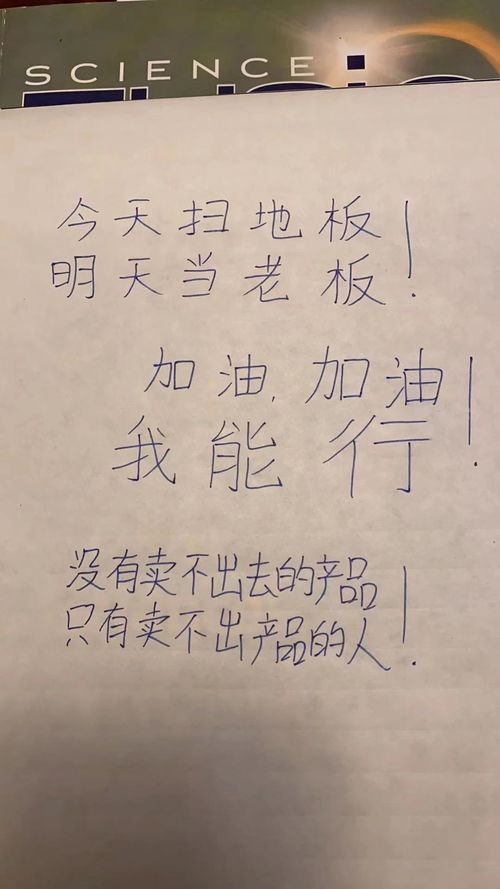 SCIENCE
今天扫地板
明天当老板!
加油,加油
我能行!
没有卖不出去的产品
只有卖不出产品的人!